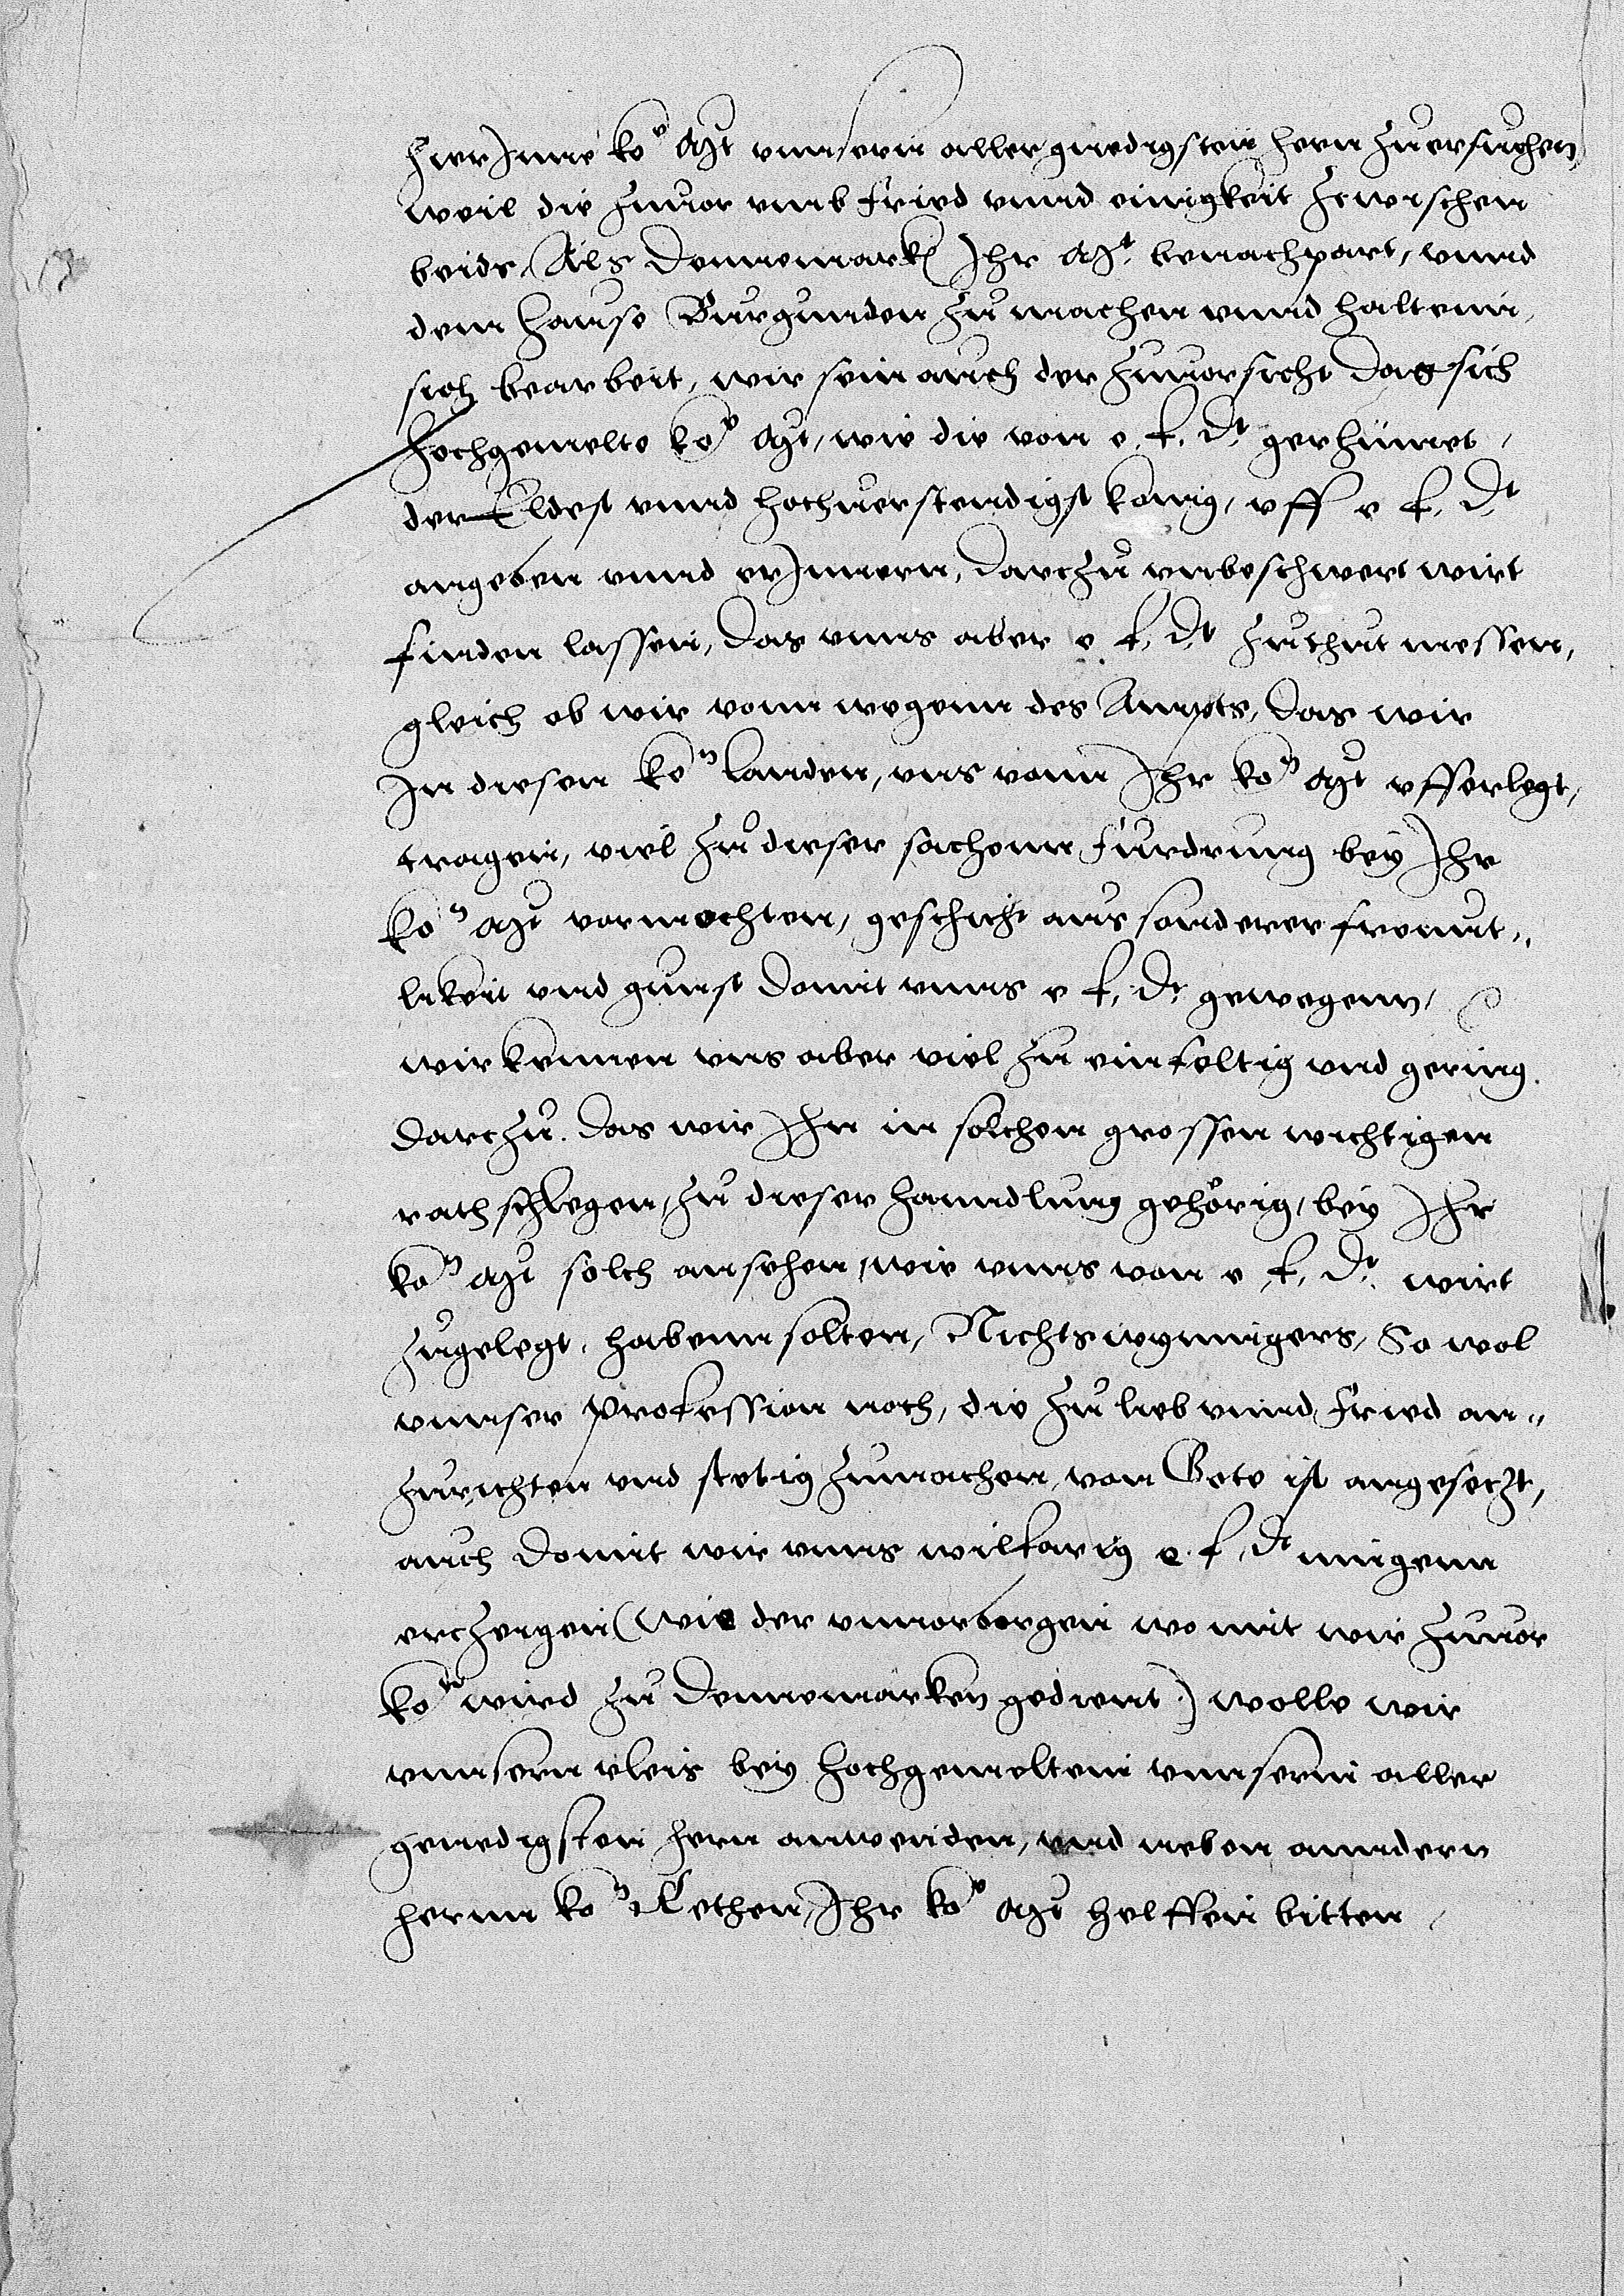 hierInne ko^e Mt vnnsern allergnedigsten hern zuersuchen
weil die zuuor vmb fried vnnd einigkeit zcwischen
beide, Als Dennemarck Ihr Mt. benachpart, vnnd
dem hause Burgunden zu machen vnnd haltenn,
sich bearbeit, wir sein auch der zuuorsicht das sich
hochgemelte ko^e Mt, wie die von e. f. Dt. gerhümet,
der Eldest vnnd hochuerstendigst konig, vff e f. Dt
angeben vnnd erInnern, darczu vnbeschwert wirt
finden lassen, das vnns aber e. f. Dt zuthut messen,
gleich ob wir vonn wegenn des Ampts, das wir
In diesen ko^n landen, vns vonn Ihr ko^n Mt vfferlegt,
tragen, viel zu dieser sachenn furdrung bey Ihr
ko^n Mt vormochten, geschicht aus sonderer freunt„
likeit vnd gunst domit vnns e f. Dt gewegenn,
wir kennen vns aber viel zu einfeltig vnd gering.
darczu. das wir Ihn in solchen grossen wichtigen
rathschlegen, zu dieser hanndlung gehörig, bey Ihr
ko^n Mt solch ansehen, wie vnns von e f. Dt. wirt
zugelegt, habenn solten, Nichtswynnigers, So wol
vnnser profession noch, die zu lieb vnnd fried an„
zurichten vnd stetig zumachen, von Gote ist angesetzt,
auch domit wir vnns wilfarig e. f. Dt mugenn
erczeigen (wie der vnuorborgen womit wir zuuor
ko^r wird zu Dennemarken gedient) wolle wir
vnnsern vleis bey hochgemeltenn vnnserm aller
gnedigsten hern anwenden, vnd neben anndern
hernn ko^n Rethen, Ihr ko^e Mt helffen bitten,